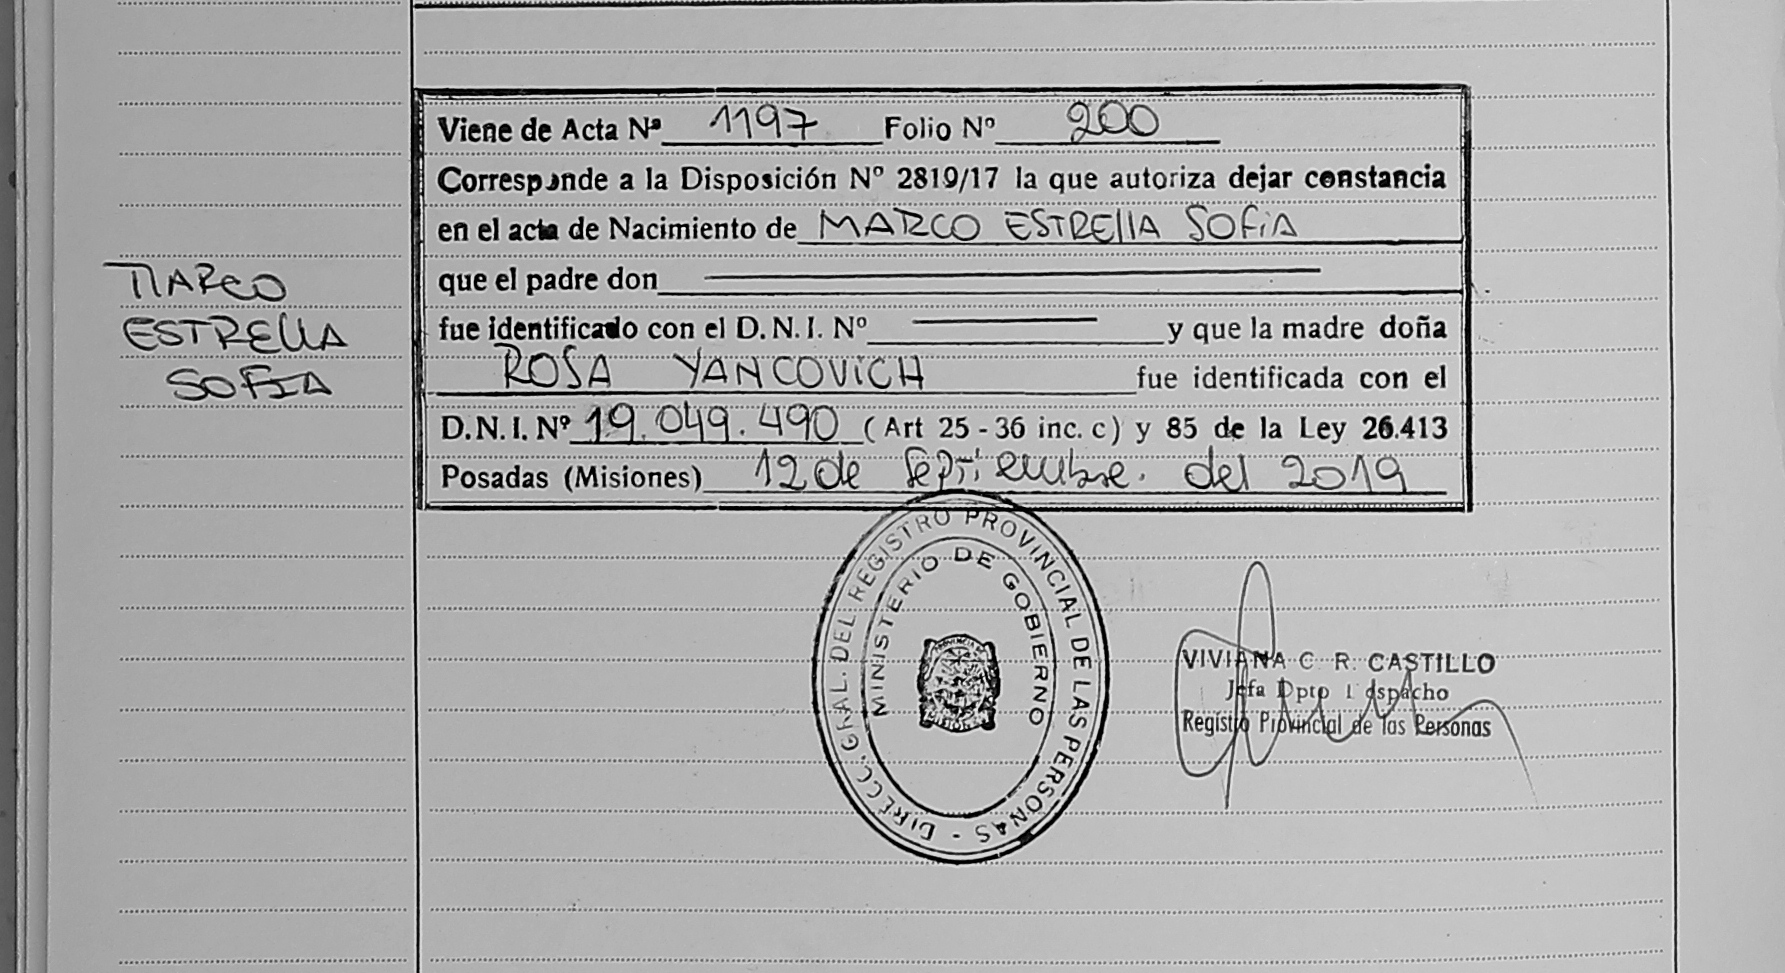 Viene de Acta Nº 1197 Folio Nº 200
Corresponde a la Disposición Nº 2819/17 la que autoriza dejar constancia
en el acta de Nacimiento de MARCO ESTRELLA SOFIA
que el padre don
fue identificado con el D.N.I. Nº y que la madre doña
ROSA YANCOVICH fue identificada con el
D.N.I. Nº 19.049.490 (Art 25-36 inc. c) y 85 de la Ley 26.413
Posadas (Misiones) 12 de Septiembre. del 2019
MARCO
ESTRELLA
SOFIA
DIRECC. GRAL. DEL REGISTRO PROVINCIAL DE LAS PERSONAS -
MINISTERIO DE GOBIERNO
MISIONES
VIVIANA C. R. CASTILLO
Jefa Dpto Despacho
Registro Provincial de las Personas